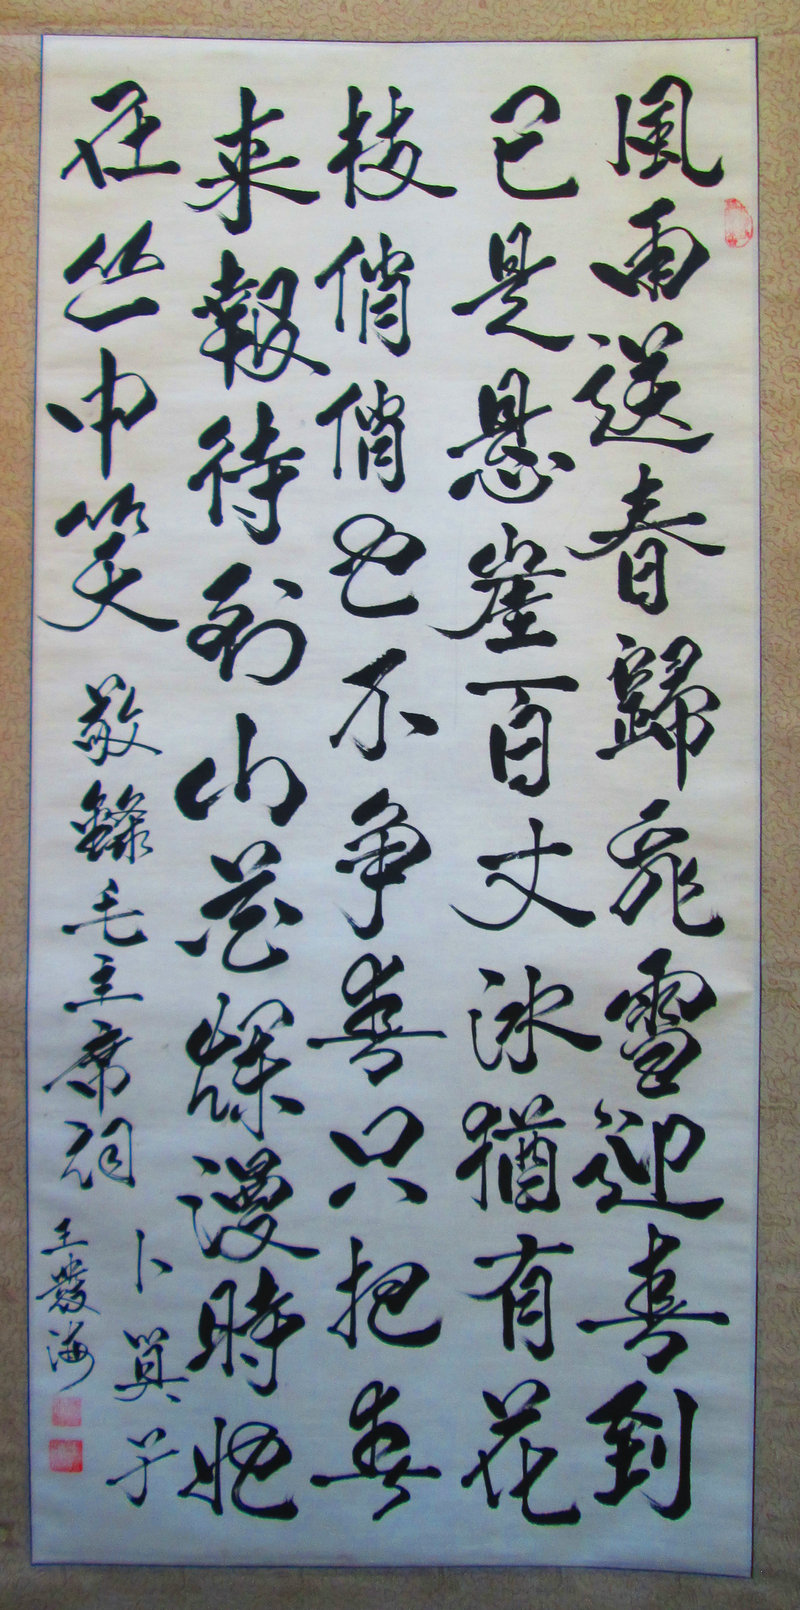 風雨送春歸飛雪迎春到
已是悬崖百丈冰猶有花
枝俏俏也不争春只把春
来報待到山花爛漫時她
在丛中笑
敬錄毛主席词
卜算子
王蘧海